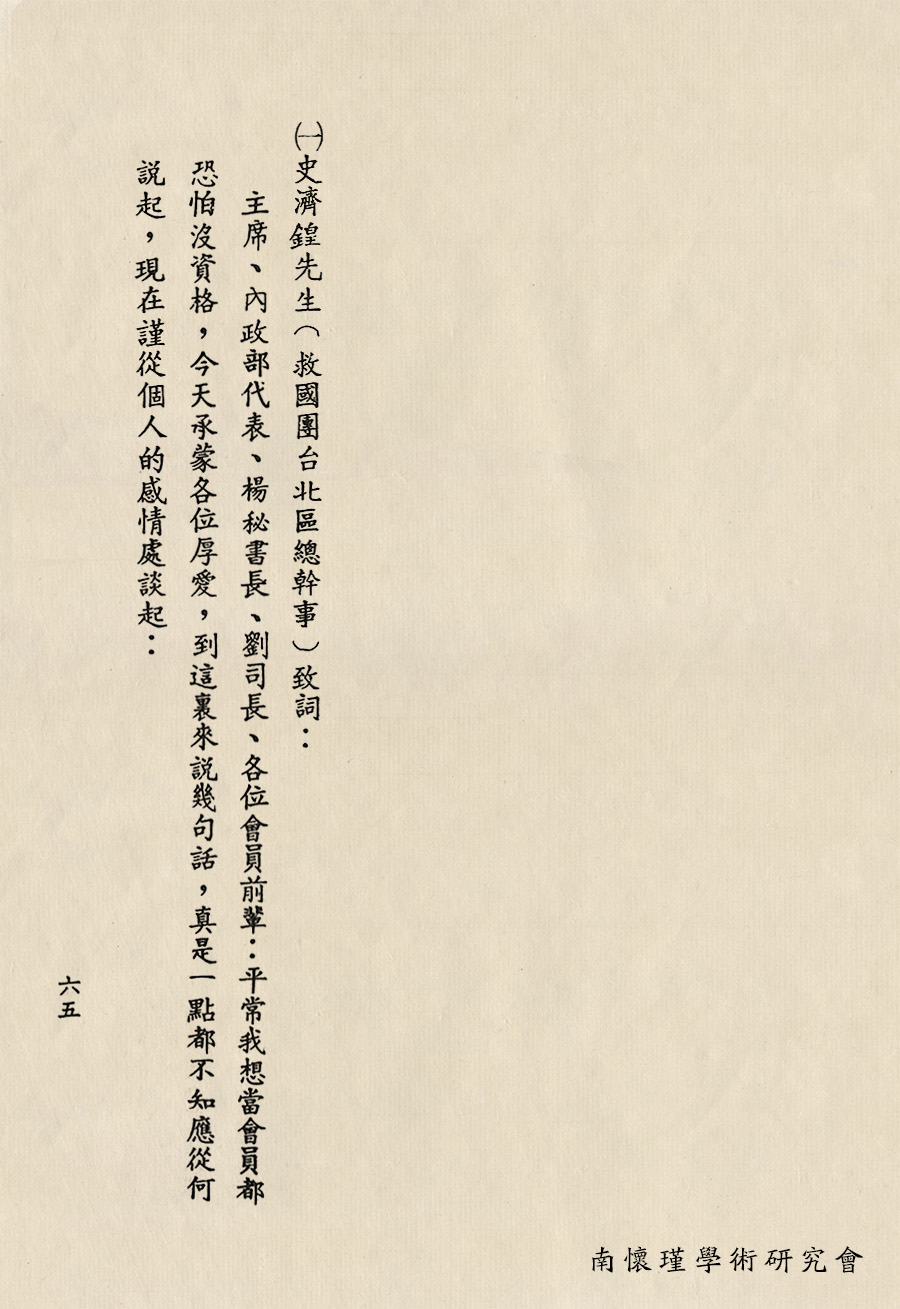 ㈠史濟鍠先生（救國團台北區總幹事）致詞：
主席、內政部代表、楊秘書長、劉司長、各位會員前輩：平常我想當會員都
恐怕沒資格，今天承蒙各位厚愛，到這裏來說幾句話，真是一點都不知應從何
說起，現在謹從個人的感情處談起：
六五
南懷瑾學術研究會